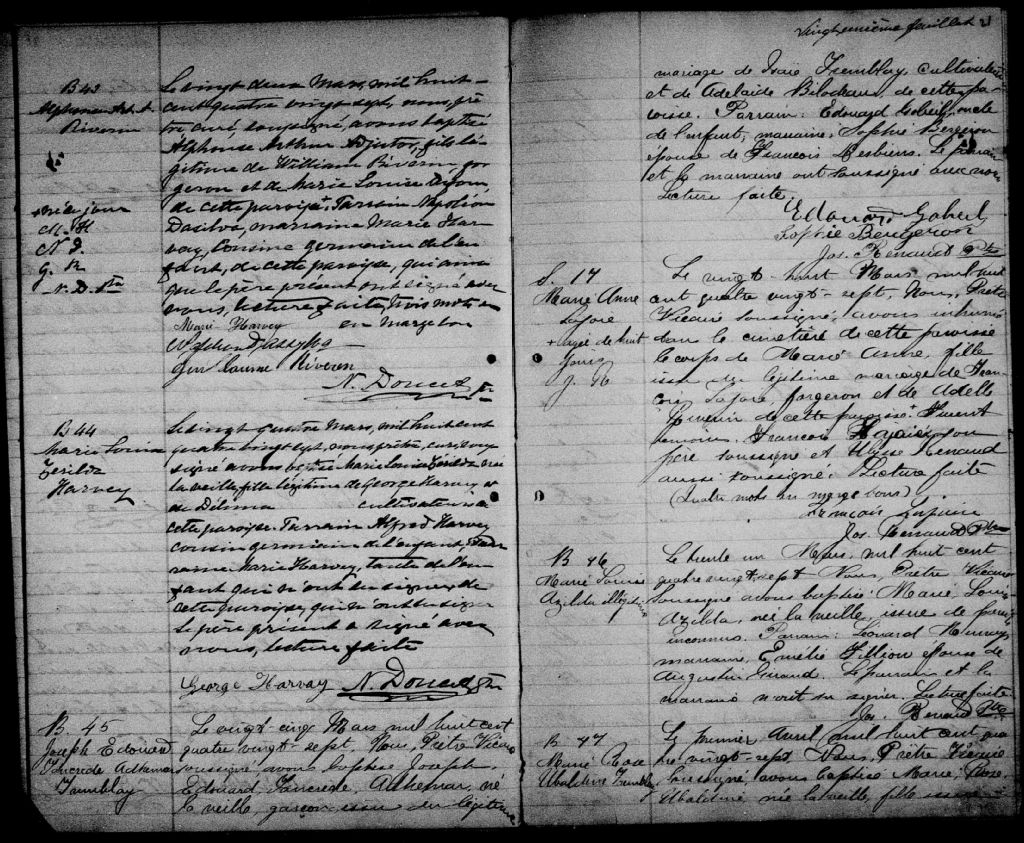 B 43
Alphonse Art. A.
Riverin
+ né le jour
M. H
N. D.
G. R
N. D. Ptre
Le vingt deux Mars, mil huit
cent quatre vingt sept, nous, prê
tre curé, soussigné, avons baptisé
Alphonse Arthur Adjutor, fils lé
gitime de William Riverin for
geron et de Marie Louise
de cette paroisse + Parrain Napoléon
Dasilva, marraine Marie Har
vey, cousine germaine de l'en
fant, de cette paroisse, qui ainsi
que le père présent ont signé avec
nous, lecture faite, trois mots en
en marge bon
Marie Harvey
Riverin
N. Doucet Ptre
B 44
Marie Louise
Zerilda
Harvey
Le vingt quatre Mars, mil huit cent
quatre vingt sept, nous prêtre, curé, sous
signé avons baptisé Marie Louise Zerilda née
la veille, fille légitime de George Harvey et
de Délima cultivateur de
cette paroisse. Parrain Alfred Harvey
cousin germain de l'enfant, mar
raine Marie Harvey, tante de l'en
fant qui n'ont su signer, de
cette paroisse, qui n'ont su signer
Le père présent a signé avec
nous, lecture faite
George Harvay N. Doucet Ptre
B. 45
Joseph Edouard
Tancrède Adhemar
Tremblay
Le vingt-cinq Mars mil huit cent
quatre vingt-sept, Nous, Prêtre Vicaire
soussigné, avons baptisé Joseph
Edouard, Tancrède, Adhemar, né
la veille, garçon issu du légitime
Vingt unième feuillet 21
mariage de Isaïe Tremblay, cultivateur
et de Adelaide Bilodeau de cette pa-
roisse. Parrain: Edouard Gobeil, oncle
de l'enfant; marraine, Sophie Bergeron
épouse de François Desbiens. Le parrain
et la marraine ont soussigné avec nous
Lecture faite
Edouard Gobeil
Sophie Bergeron
Jos. Renaud Ptre
S. 17
Marie Anne
Lajoie
+ agée de huit
jours
J. R
Le vingt-huit Mars mil huit
cent quatre vingt-sept, Nous, Prêtre
Vicaire soussigné, avons inhumé
dans le cimetière de cette paroisse
le corps de Marie Anne, fille
issue du légitime mariage de Fran
çois Lajoie, forgeron et de Adelle
de cette paroisse + Furent
témoins, François Lajoie, son
père soussigné et Ulysse Renaud
aussi soussigné. Lecture faite
(Quatre mots en marge bons)
François Lajoie
Jos. Renaud Ptre
B 46
Marie Louise
Azilda illégitime
Le trente un Mars, mil huit cent
quatre vingt-sept Nous, Prêtre Vicaire
soussigné avons baptisé Marie, Louise
Azilda, née la veille, issue de parents
inconnus. Parrain: Léonard Murray,
marraine, Emélie Fillion épouse de
Augustin Girard. Le parrain et la
marraine n'ont su signer. Lecture faite
Jos. Renaud Ptre
B 47
Marie Rose
Ubaldine Tremblay
Le premier Avril, mil huit cent qua
tre vingt-sept Nous, Prêtre Vicaire
soussigné avons baptisé Marie, Rose,
Ubaldine, née la veille, fille issue